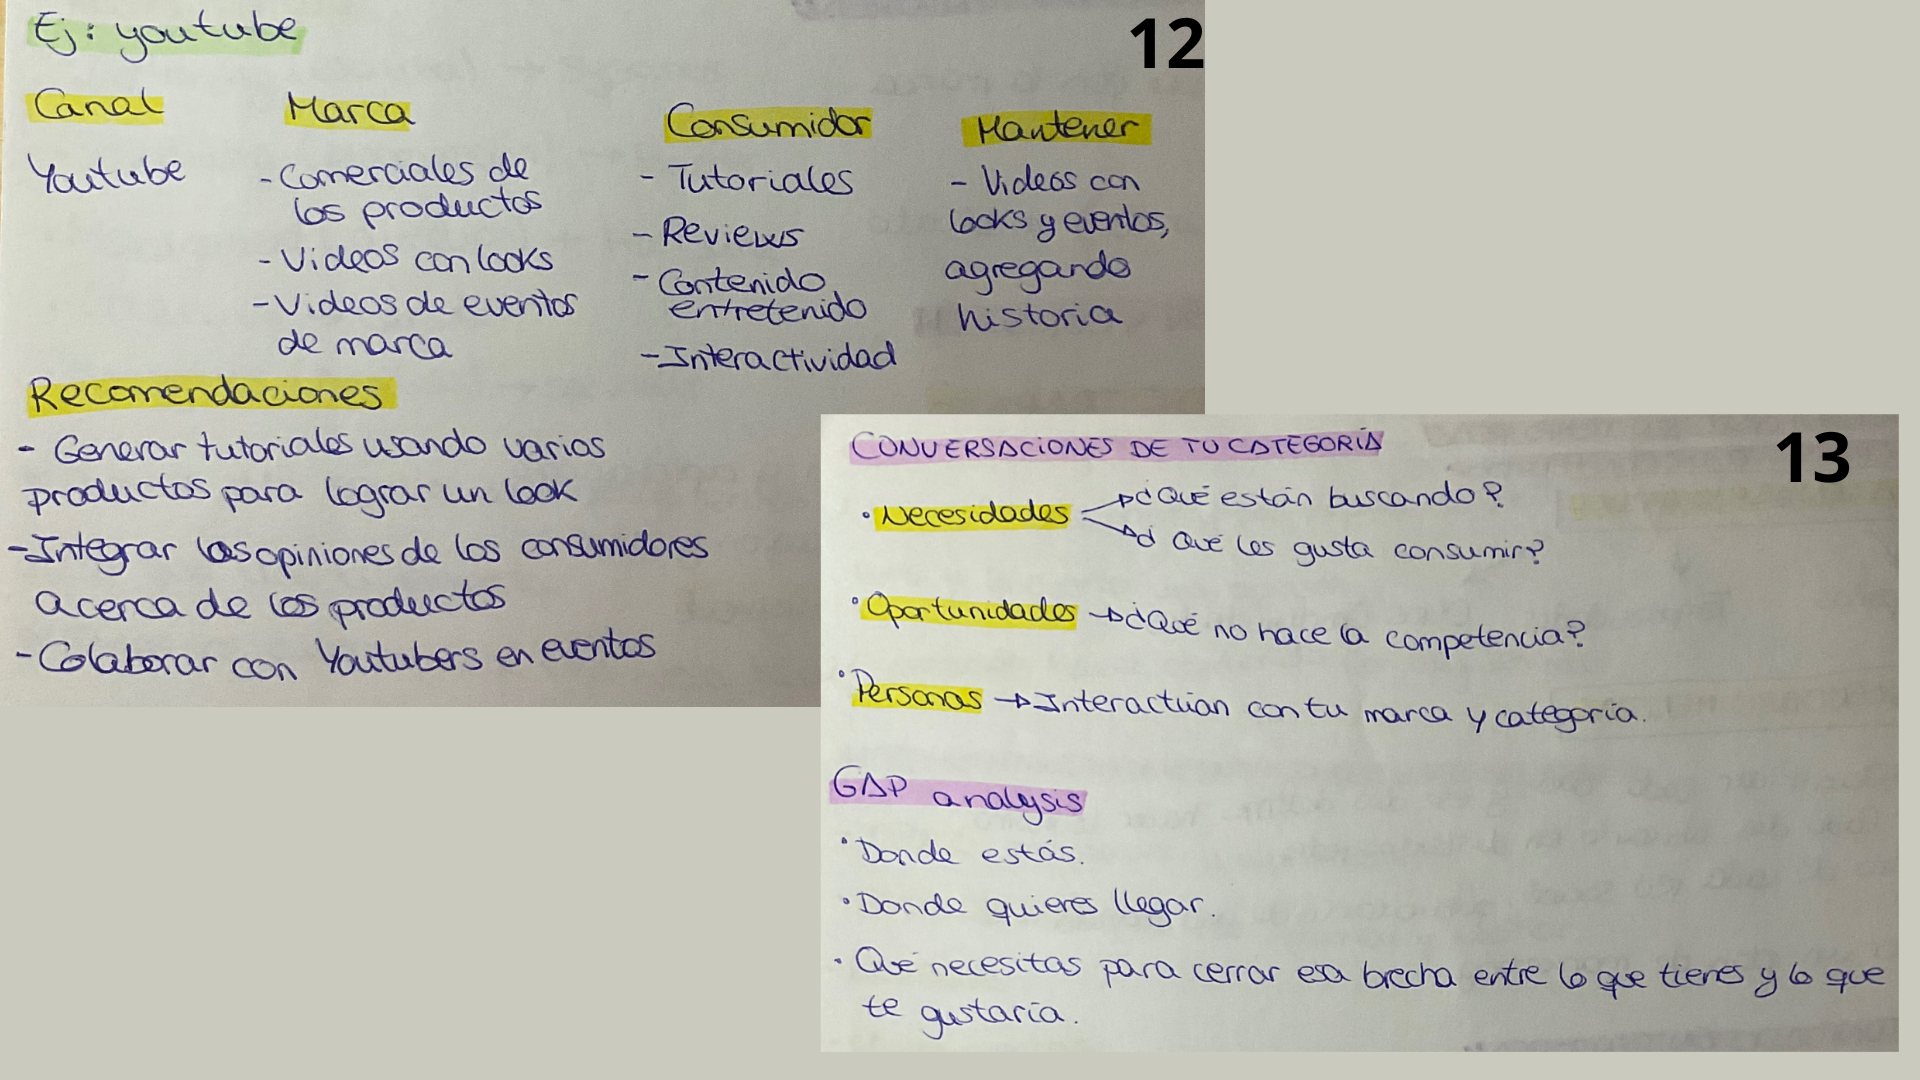 Ej: youtube
12
Canal
Marca
Consumidor
Mantener
Youtube
- Comerciales de
los productos
- Videos con looks
- Videos de eventos
de marca
- Tutoriales
- Reviews
- Contenido
entretenido
- Interactividad
- Videos con
looks y eventos,
agregando
historia
Recomendaciones
- Generar tutoriales usando varios
productos para lograr un look
- Integrar las opiniones de los consumidores
acerca de los productos
- Colaborar con Youtubers en eventos
CONVERSACIONES DE TU CATEGORÍA
13
• Necesidades → ¿Qué están buscando?
→ ¿Qué les gusta consumir?
• Oportunidades → ¿Qué no hace la competencia?
• Personas → Interactúan con tu marca y categoría.
GAP analysis
• Donde estás.
• Donde quieres llegar.
• Qué necesitas para cerrar esa brecha entre lo que tienes y lo que
te gustaría.